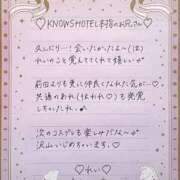 ♡KNOWSHOTEL本指のお兄さん♡
久しぶり〜!会いたかったよ〜(泣)
れいのこと覚えててくれて嬉しい
前回よりも更に仲良くなれた気が…♡
共通のあれ(はぁれ♡)も発覚
しちゃったし♪
次のコスプレも楽しみだな〜
沢山いじめちゃいます。♡
♡れい♡